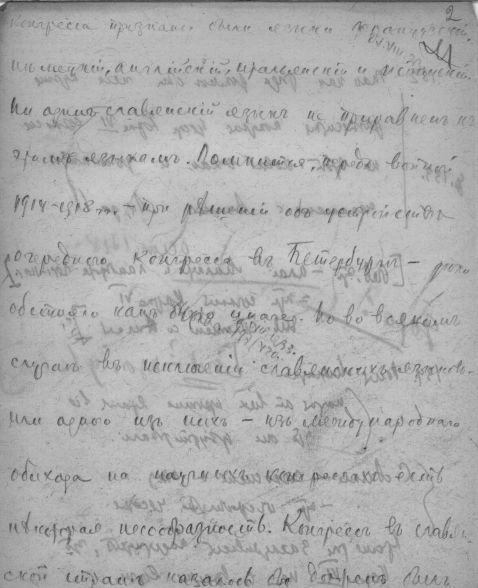 2
Конгресса признаны были языки французский,
нѣмецкій, английскій, итальянскій и испанскій.
Ни одинъ славянскій языкъ не приравненъ къ
этимъ языкамъ. Помнится, передъ войной
1914-1918 гг. – при рѣшеніи объ устройствѣ
очередного Конгресса въ Петербургѣ – дѣло
обстояло какъ будто иначе. Во всякомъ
случаѣ въ исключеніи славянскихъ языковъ
или одного изъ нихъ – изъ международнаго
обихода на научныхъ конгрессахъ есть
нѣкоторая несообразность. Конгрессъ въ славян-
ской странѣ казалось бы долженъ былъ